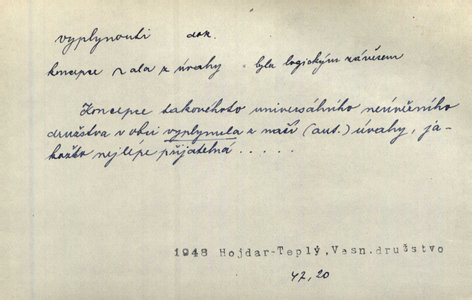 vyplynouti dok.
koncepce ~ala z úvahy - byla logickým závěrem
Koncepce takovéhoto universálního neúvěrního
družstva v obci vyplynula z naší (aut.) úvahy, ja-
kožto nejlépe přijatelná . . . . .
1948 Hojdar-Teplý, Vesn.družstvo
47, 20